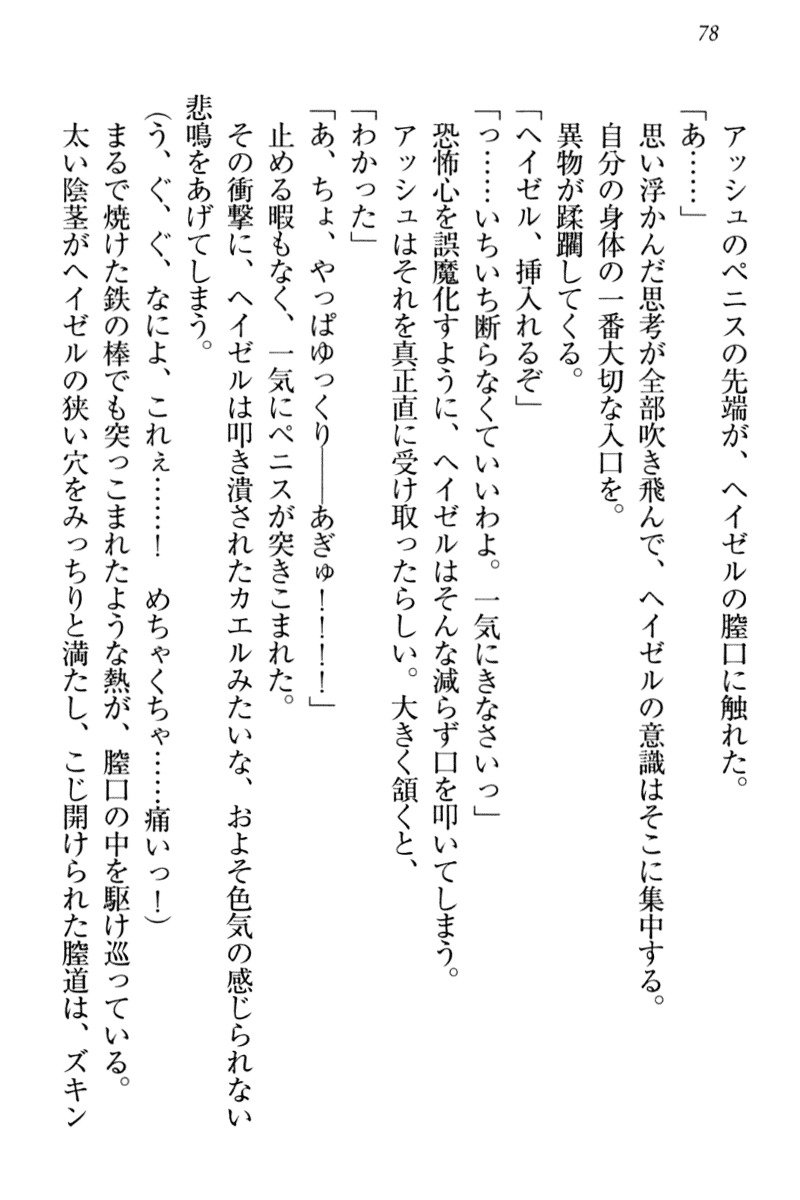 78
アッシュのペニスの先端が、ヘイゼルの膣口に触れた。
「あ……」
思い浮かんだ思考が全部吹き飛んで、ヘイゼルの意識はそこに集中する。
自分の身体の一番大切な入口を。
異物が蹂躙してくる。
「ヘイゼル、挿入れるぞ」
「っ……いちいち断らなくていいわよ。一気にきなさいっ」
恐怖心を誤魔化すように、ヘイゼルはそんな減らず口を叩いてしまう。
アッシュはそれを真正直に受け取ったらしい。大きく頷くと、
「わかった」
「あ、ちょ、やっぱゆっくり――あぎゅ！！！！」
止める暇もなく、一気にペニスが突きこまれた。
その衝撃に、ヘイゼルは叩き潰されたカエルみたいな、およそ色気の感じられない
悲鳴をあげてしまう。
（う、ぐ、ぐ、なによ、これぇ……！　めちゃくちゃ……痛いっ！）
まるで焼けた鉄の棒でも突っこまれたような熱が、膣口の中を駆け巡っている。
太い陰茎がヘイゼルの狭い穴をみっちりと満たし、こじ開けられた膣道は、ズキン